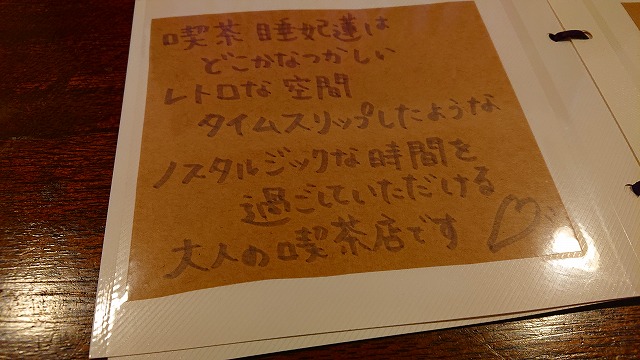 喫茶 睡妃蓮は
どこかなつかしい
レトロな空間
タイムスリップしたような
ノスタルジックな時間を
過ごしていただける
大人の喫茶店です